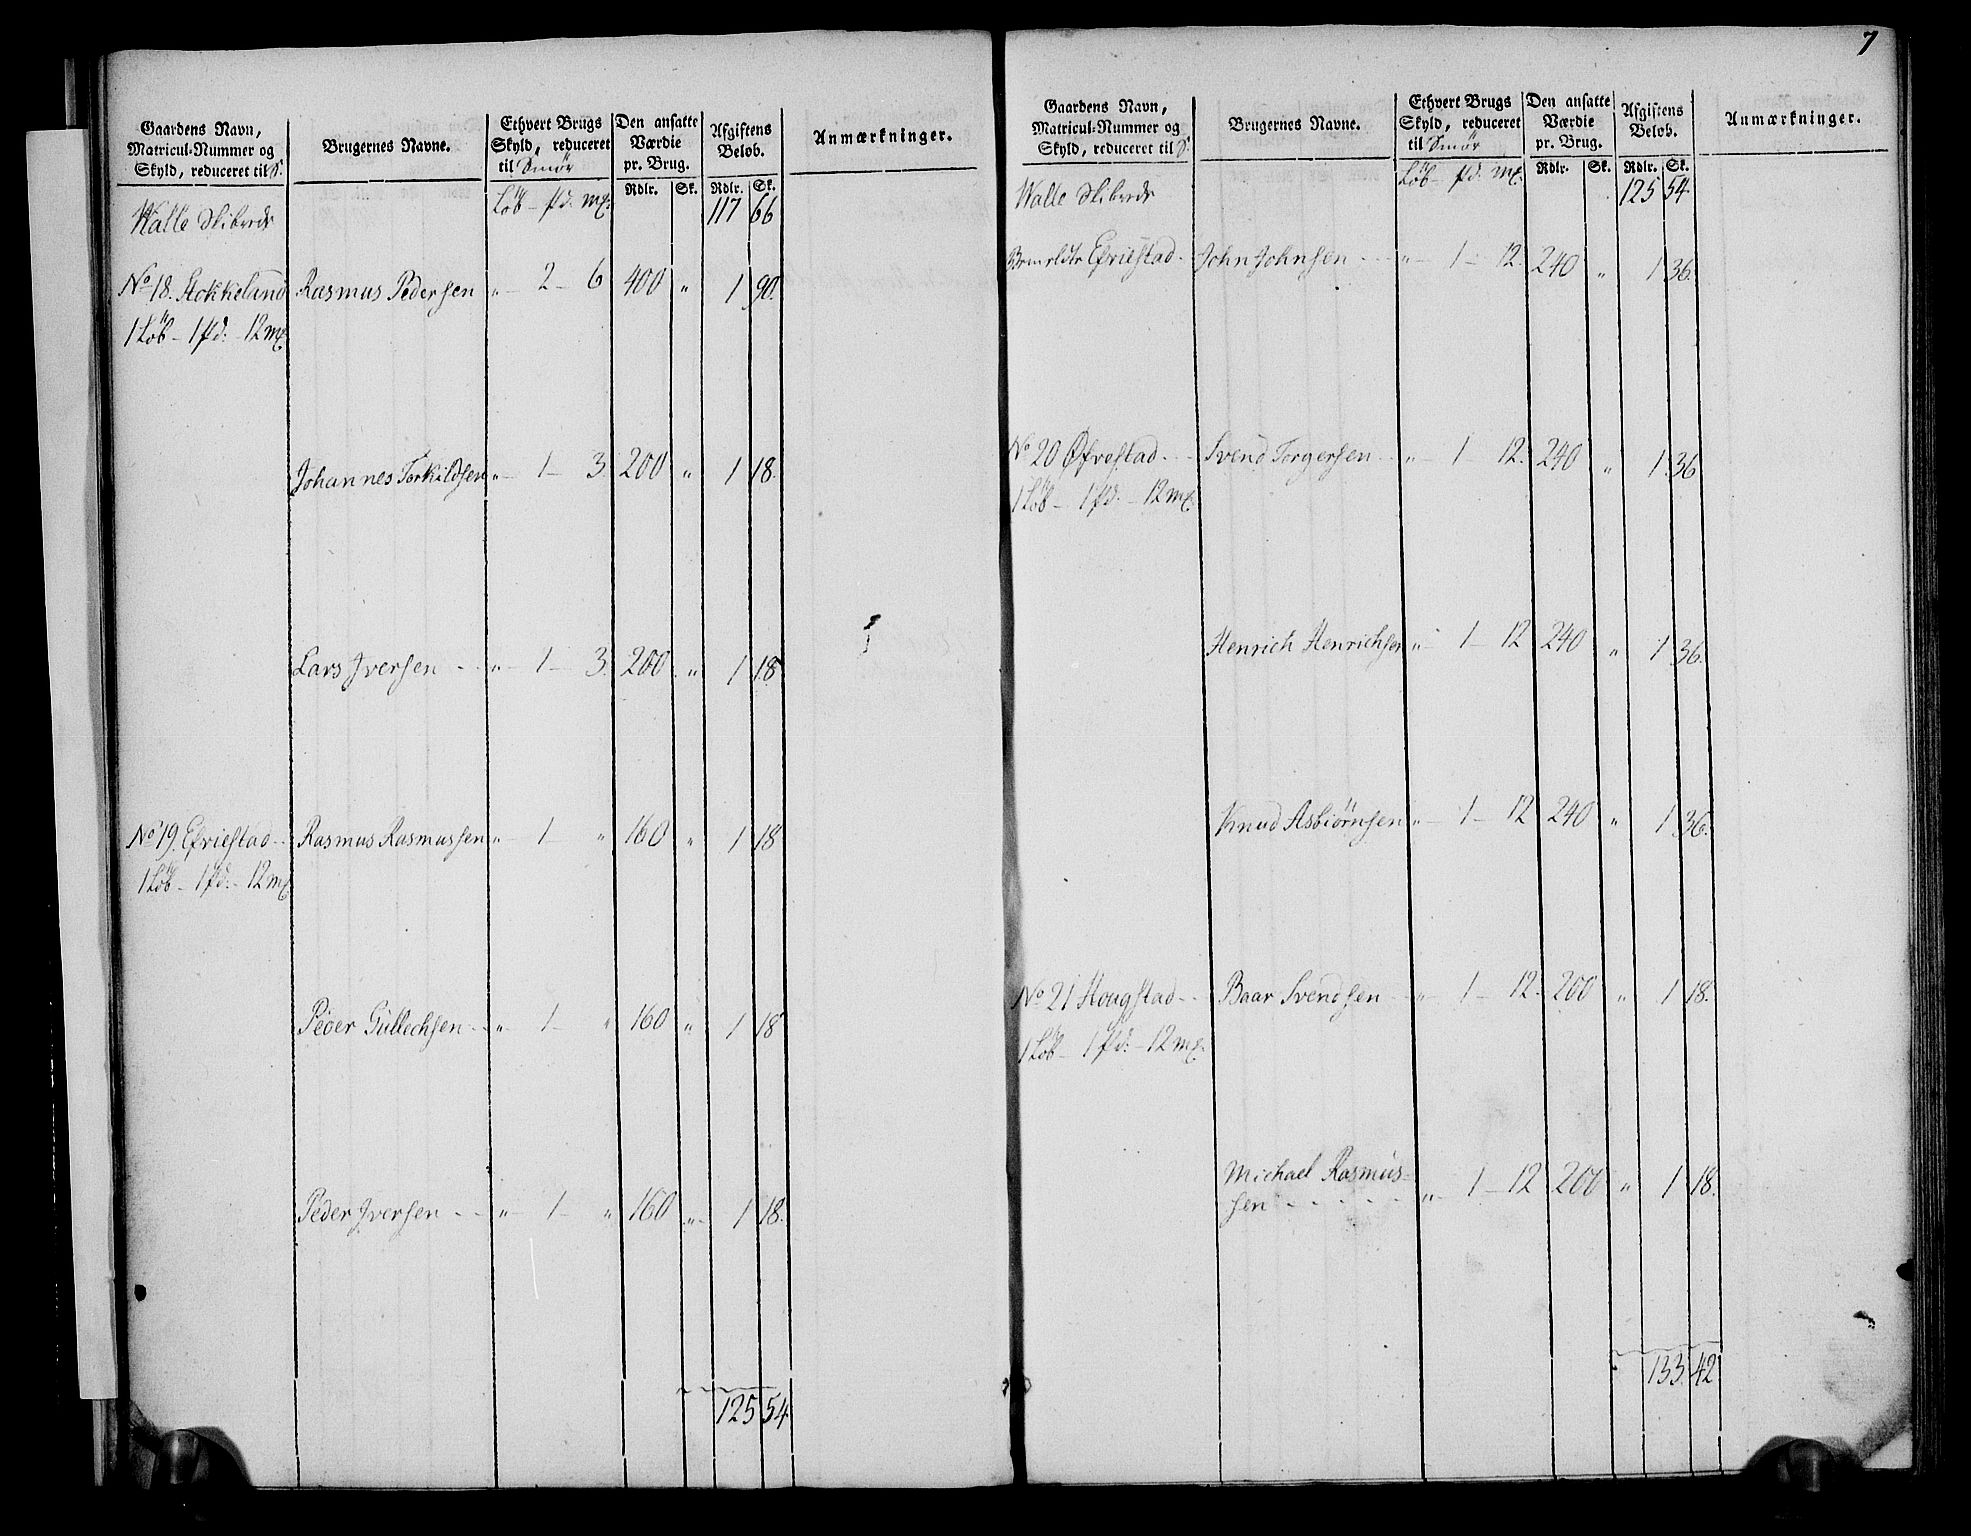 Gaardens Navn,
Matricul-Nummer og
Skyld, reduceret til S.
Brugernes Navne.
Ethvert Brugs
Skyld, reduceret
til Smør
Den ansatte
Værdie
pr. Brug.
Afgiftens
Beløb.
Anmærkninger.
Löb - pd. mk.
Rdlr. Sk. Rdlr. Sk.
Walle Skibrede 117 66
No 18. Stokkeland Rasmus Pedersen „ 2 - 6 400 „ 1 90.
1 Löb - 1 pd: - 12 mk
Johannes Torkildsen „ 1 - 3. 200 „ 1 18.
Lars Iversen - „ 1 - 3. 200 „ 1 18.
No 19. Efriestad - Rasmus Rasmussen „ 1 - „ 160 „ 1 18
1 Löb - 1 pd: - 12 mk
Peder Gullechsen - „ 1 - „ 160 „ 1 18
Peder Iversen - - „ 1 - „ 160 „ 1 18.
125 54
7
Gaardens Navn,
Matricul-Nummer og
Skyld, reduceret til S.
Brugernes Navne.
Ethvert Brugs
Skyld, reduceret
til Smør
Den ansatte
Værdie
pr. Brug.
Afgiftens
Beløb.
Anmærkninger.
Löb - pd. mk.
Rdlr. Sk. Rdlr. Sk.
Walle Skibrede 125 54
Efriestad - John Johnsen - - „ 1 - 12. 240 „ 1 36.
No 20 Øfrestad - - Svend Torgersen - „ 1 12. 240 „ 1 36
1 Löb - 1 pd. - 12 mk
Henrich Henrichsen „ 1 - 12 240 „ 1 36.
Knud Asbiørnsen „ 1 - 12 240 „ 1 36.
No 21 Hougstad - - Baar Svendsen - „ 1 - 12. 200 „ 1 18.
1 Löb - 1 pd: - 12 mk.
Michael Rasmus-
sen - - - - „ 1 - 12 200 „ 1 18.
133. 42